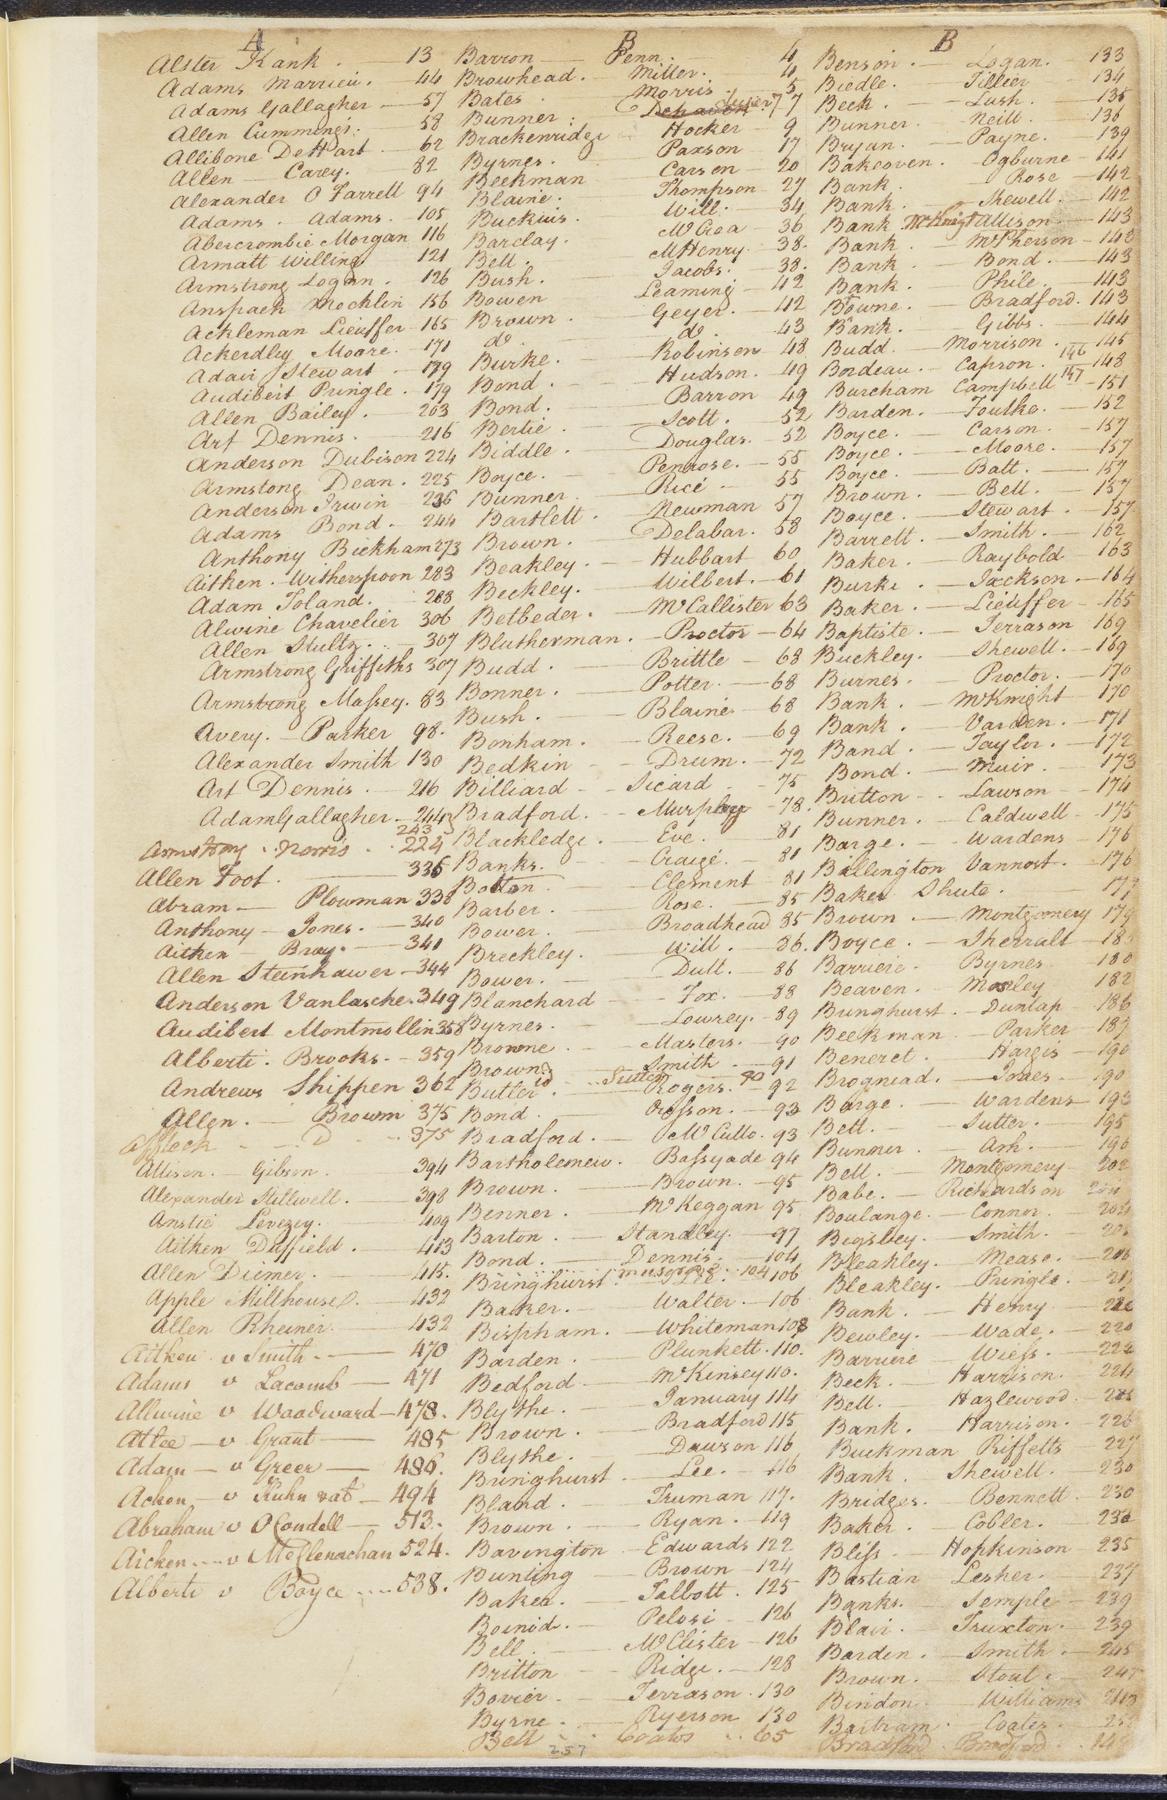 A
Alster Kank. 13
Adams Marrieu. 44
Adams Gallagher — 57
Allen Cummings. 58
Allibone DeHart — 62
Allen — Carey. 82
Alexander O Farrell 94
Adams. Adams. 105
Abercrombie Morgan 116
Armatt Willing 121
Armstrong Logan. 126
Anspach Mechlin 156
Ackleman Lieuffer 165
Ackerdley Moore. 171
Adair Stewart — 179
Audibert Pringle. 179
Allen Bailey. — 203
Art Dennis. — 216
Anderson Dubison 224
Armstong Dean. 225
Anderson Irwin 236
Adams Bond. 244
Anthony Bickham 273
Aitken. Witherspoon 283
Adam Toland. 288
Alwine Chavelier 306
Allen Stultz. 307
Armstrong Griffiths 307
Armstrong Massey. 83
Avery. — Parker 98.
Alexander Smith 130
Art Dennis. — 216
Adam Gallagher — 244
243
Armstrong. Norris. 224
Allen Foot. — 336
Abram — Plowman 338
Anthony — Jones. — 340
Aitken — Bray. — 341
Allen Steinhawer — 344
Anderson Vanlasche. 349
Audibert Montmollin 358
Alberti. Brooks. — 359
Andrews Shippen 362
Allen. — Brown 375
Affleck — D — 375
Allison. — Gibson. 394
Alexander Stillwell. — 398
Anstie Levezey. 409
Aitken Duffield. — 413
Allen Diemer. — 415.
Apple Millhouse. — 432
Allen Rheiner. — 432
Aitken v Smith — 470
Adams v Lacomb — 471
Allwine v Woodward — 478.
Atlee — v Grant — 485
Adam — v Greer — 486.
Acken, v Kuhn et al — 494
Abraham v OCondell — 513.
Aicken — v McClenachan 524.
Alberti v Boyce — 538.
B
Barron — Penn 4
Browhead. — Miller. 4
Bates. Morris 5
Bunner: Dehaven Juser 7 7
Brackenridge Hocker — 9
Byrnes. Paxson 17
Beekman Carson — 20
Blaine: Thompson — 27
Buckius. Will. — 34
Barclay. McCrea — 36
Bell. McHenry — 38.
Bush. Jacobs. — 38.
Bowen Leaming — 42
Brown. Geyer. — 42
do. do. — 43
Burke. — Robinson 48
Bond. — Hudson. 49
Bond. — Barron 49
Bertie. — Scott. — 52
Biddle. — Douglas. — 52
Boyce. — Penrose. — 55
Bunner. — Rice — 55
Bartlett. — Newman 57
Brown. — Delabar. 58
Beakley. — Hubbart 60
Beckley. — Wilbert. — 61
Betbeder. — McCallister 63
Blutherman. — Proctor — 64
Budd. — Brittle — 68
Bonner. — Potter. — 68
Bush. — Blaine 68
Bonham. — Reese. 69
Bedkin — Drum. — 72
Billiard — Sicard 75
Bradford. — Murphy — 78.
Blackledge. — Eve. 81
Banks. — Craige. — 81
Botton. — Clement 81
Barber. — Rose. — 85
Bower. — Broadhead 85
Breckley. — Will. — 86.
Bower. — Dull. — 86
Blanchard — Fox. — 88
Byrnes. — Lowrey. — 89
Browne — Masters. — 90
Brown. Smith. — 91
do Sutter — 90
Butler. — Rogers. — 92
Bond. — Crosson. — 93
Bradford. — McCullo. 93
Bartholemew. Bassyade 94
Brown. — Brown. — 95
Benner. — McKeggan 95
Barton. — Standley. — 97
Bond. — Dennis. — 104
Musgrove — 104
Bringhurst — Lee. — 106
Backer. — Walter. — 106
Bispham. — Whiteman 108
Barden. — Plunkett. 110.
Bedford. — McKinsey 110.
Blythe. — January 114
Brown. — Bradford 115
Blythe. — Dawson 116
Bringhurst — Lee. — 116
Bland. — Truman 117.
Brown. — Ryan. — 119
Bavington — Edwards 122
Bunting — Brown — 124
Baker. — Talbott. 125
Boinod. — Pelosi — 126
Bell. — McClister — 126
Britton — Ridge. — 128
Bovier. — Terrason. 130
Byrne. — Ryerson 130
Bell — Coats — 65
257
B
Benson. — Logan. 133
Biedle. — Tillier 134
Beck. — Lush. — 135
Bunner — Neill. 136
Bryan. — Payne. 139
Bakeoven. — Ogburne — 141
Bank. — Rose — 142
Bank. — Shewell. — 142
Bank McKnight Allison — 143
Bank. — McPherson — 143
Bank. — Bond. — 143
Bank. — Phile. — 143
Bowne. — Bradford. 143
Bank. — Gibbs — 144
Budd — Morrison. — 145
Bordeau. — Capron. 146 — 148
Burcham Campbell 147 — 151
Barden. — Foulke. — 152
Boyce. — Carson. — 157
Boyce. — Moore. — 157
Boyce. — Batt. — 157
Brown. — Bell. — 157
Boyce. — Stewart. — 157
Barrett. — Smith. — 162
Baker. — Raybold 163
Burke. — Jackson. — 164
Baker. — Lieuffer — 165
Baptiste. — Terrason 169
Buckley. — Shewell. — 169
Burnes. — Proctor. — 170
Bank. — McKnight 170
Bank. — Varden. — 171
Band. — Taylor. — 172
Bond. — Muir. — 173
Britton — Lawson — 174
Bunner. — Caldwell — 175
Barge. — Wardens — 176
Billington Vannost. — 176
Baker Shute. — 177
Brown. — Montgomery 179
Boyce. — Sherralt — 18
Barriere. — Byrnes 180
Beaven. — Mosley 182
Bringhurst. — Dunlap — 186
Beekman — Parker 189
Beneret. — Hargis — 190
Brogniad. — Jones — 190
Barge. — Wardens 193
Bell. — Sutter. — 195
Bunner. — Ash. — 196
Bell. — Montgomery — 202
Babe. — Richardson
Boulange — Conner. — 204
Bigsbey. — Smith. — 205
Bleakley. — Mease. — 208
Bleakley. — Pringle. — 21
Bank. — Henry. — 216
Bewley. — Wade. — 220
Barriere — Wiess. — 222
Beck. — Harrison. — 224
Bell. — Hazlewood. — 225
Bank. — Harrison. — 226
Buckman Riffetts 227
Bank. Shewell. — 230
Bridges. Bennett — 230
Baker. — Cobler. — 232
Bliss — Hopkinson — 235
Bastian Lesher. — 237
Banks. — Semple — 239
Blair. — Truxton. — 239
Barden. — Smith. — 245
Brown. — Stout. — 247
Bindon. — Williams 248
Bartram. — Coates. — 25
Bradford. Bradford. 14